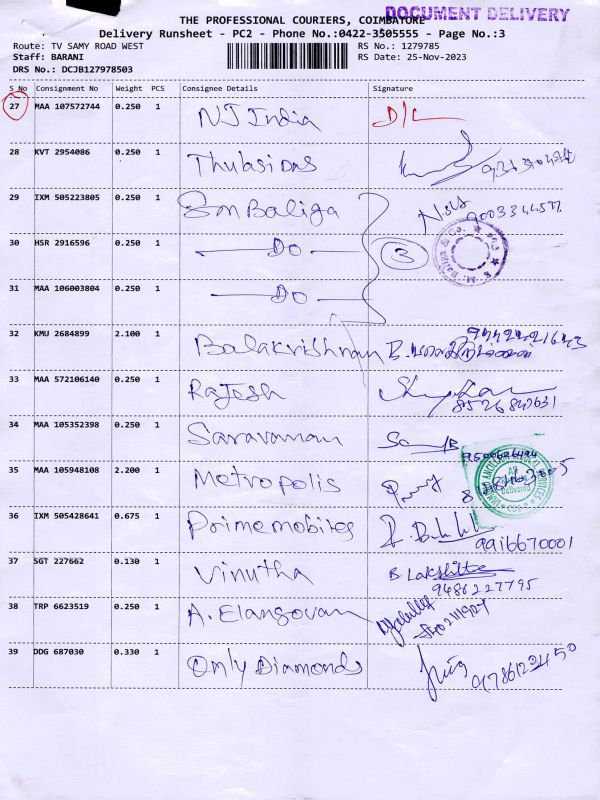 DOCUMENT DELIVERY
THE PROFESSIONAL COURIERS, COIMBATORE
Delivery Runsheet - PC2 - Phone No.:0422-3505555 - Page No.:3
Route: TV SAMY ROAD WEST
RS No.: 1279785
Staff: BARANI
RS Date: 25-Nov-2023
DRS No.: DCJB127978503
S No Consignment No Weight PCS Consignee Details Signature
27 MAA 107572744 0.250 1 NJ India D/L
28 KVT 2954086 0.250 1 Thulasi Das
29 IXM 505223805 0.250 1 Sm Baliga
30 HSR 2916596 0.250 1 Do 3
31 MAA 106003804 0.250 1 Do
32 KMU 2684899 2.100 1 Balakrishnan
33 MAA 572106140 0.250 1 Rajesh
8526842631
34 MAA 105352398 0.250 1 Saravanan
35 MAA 105948108 2.200 1 Metropolis
36 IXM 505428641 0.675 1 Prime mobites
9916670001
37 SGT 227662 0.130 1 Vinutha B. Lakshitha
9486227795
38 TRP 6623519 0.250 1 A. Elangovan
39 DDG 687030 0.330 1 Only Diamonds